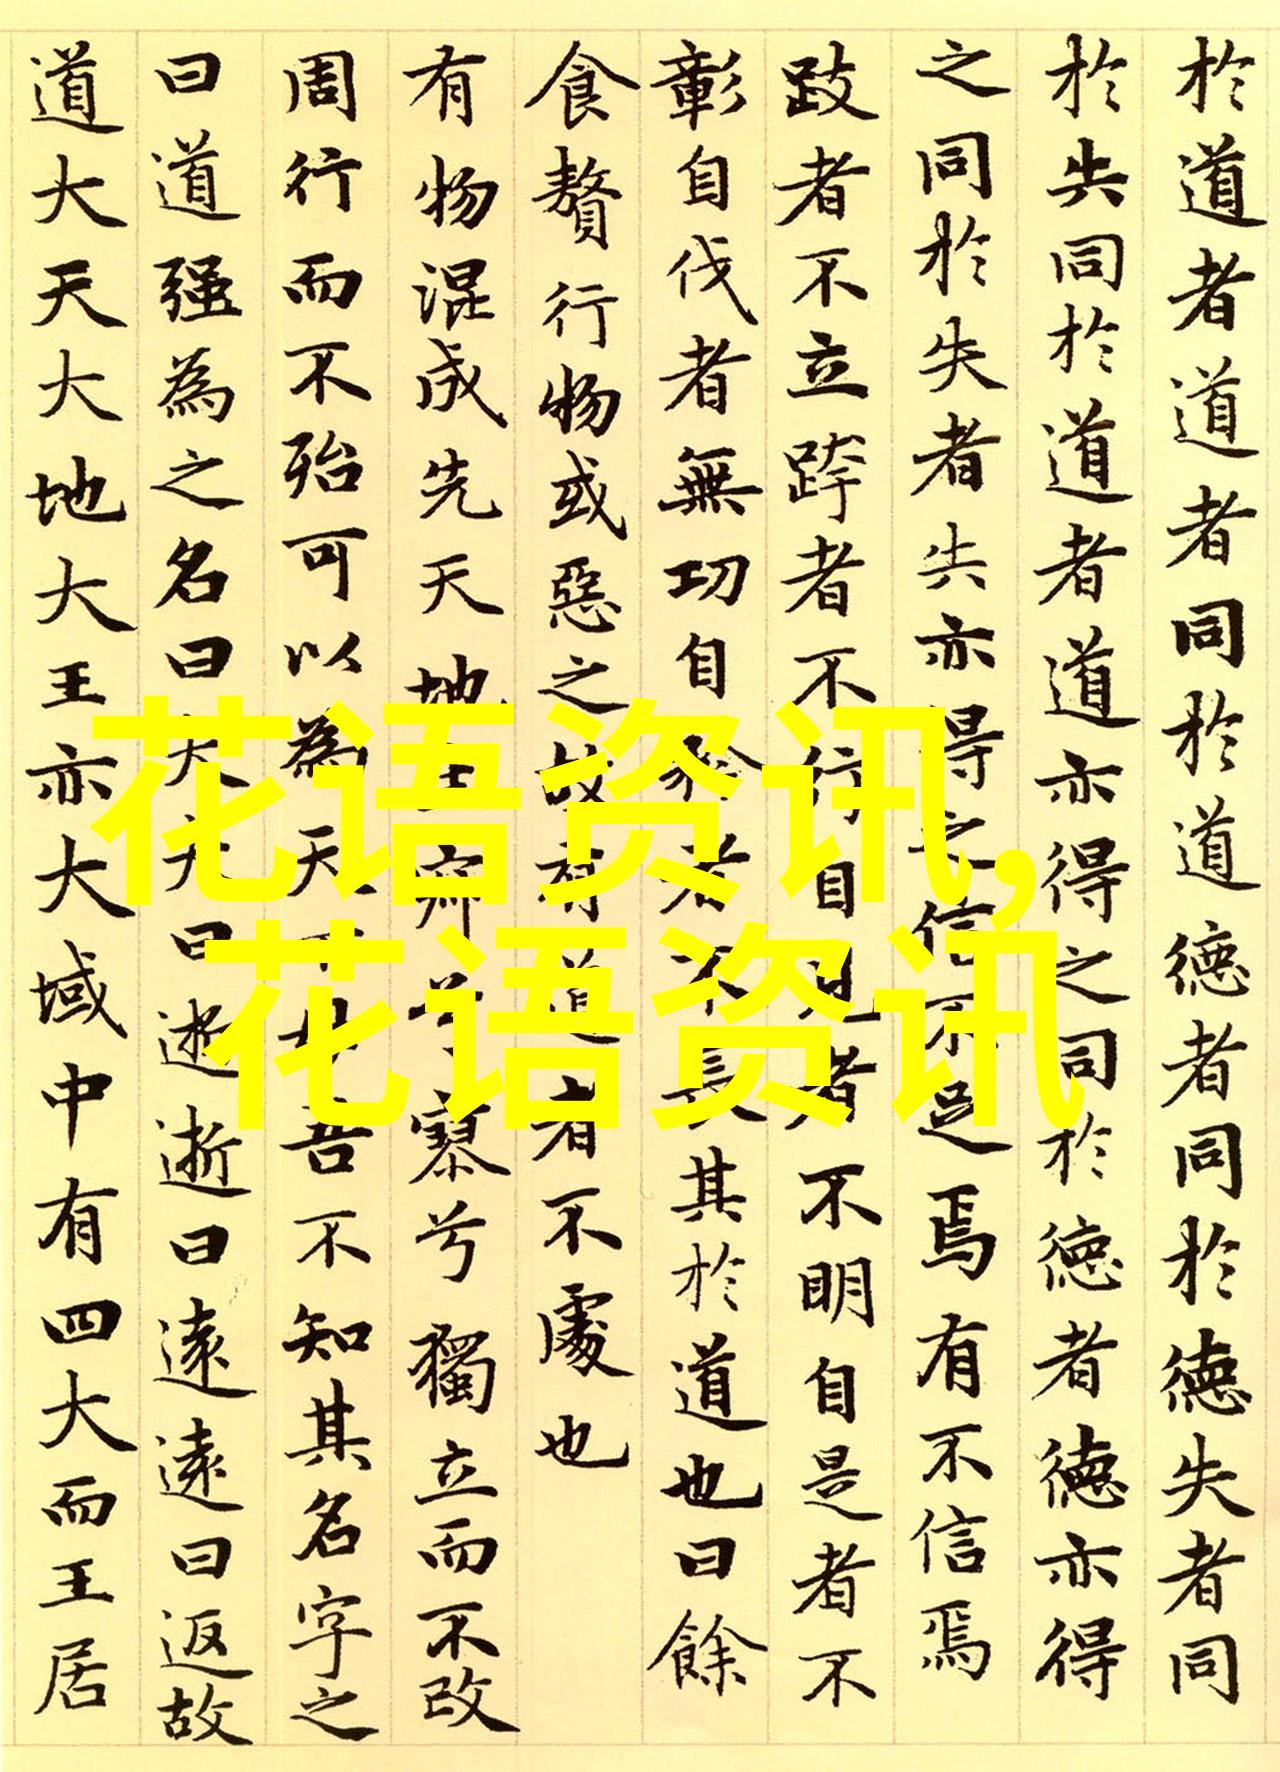 於道者道者同於道德者同於德失者同
於失同於道者道亦得之同於德者德亦得
之同於失者失亦得之信不足焉有不信焉
跂者不立跨者不行自見者不明自是者不
彰自伐者無功自矜者不長其於道也曰餘
食贅行物或惡之故有道者不處也
有物混成先天地生寂兮寥兮獨立而不改
周行而不殆可以為天下母吾不知其名字之
曰道强為之名曰大大曰逝逝曰遠遠曰返故
道大天大地大王亦大域中有四大而王居
花语资讯,
花语资讯